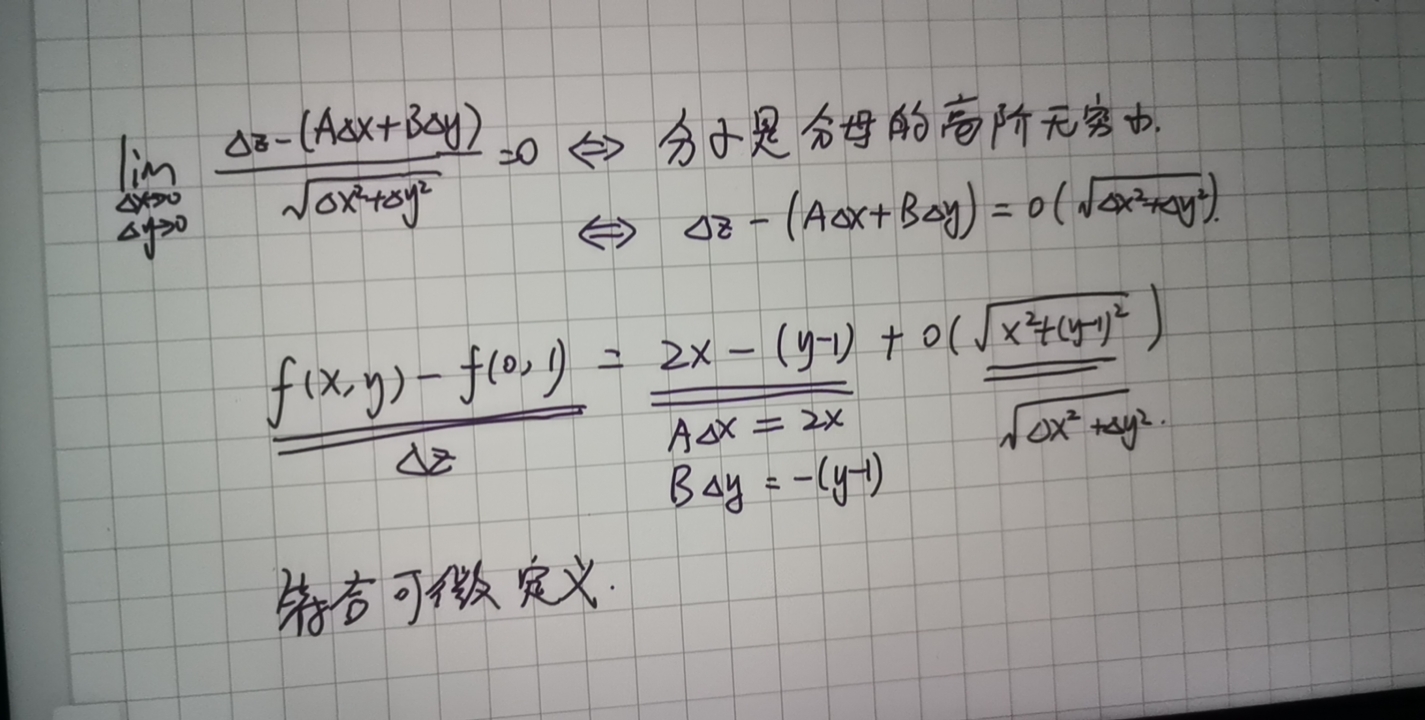 lim Δx→0 Δy→0 (Δz-(AΔx+BΔy))/√(Δx²+Δy²) =0 ⇔ 分子是分母的高阶无穷小.
⇔ Δz-(AΔx+BΔy)=o(√(Δx²+Δy²)).
f(x,y)-f(0,1) = 2x-(y-1)+o(√(x²+(y-1)²))
Δz AΔx=2x √(Δx²+Δy²).
BΔy=-(y-1)
符合可微定义.